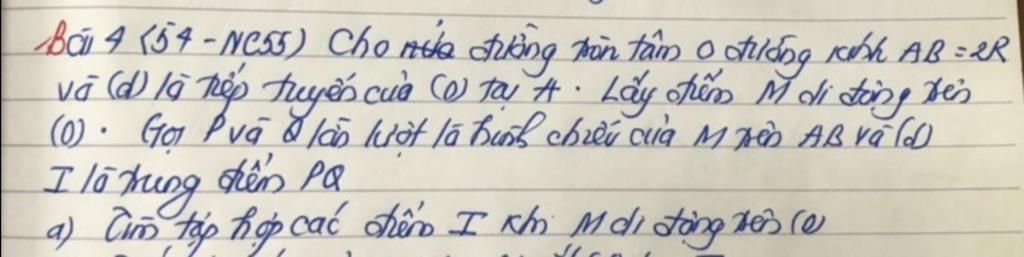 Bài 4 (54 - NC55) Cho đường tròn tâm O đường kính AB = 2R
và (d) là tiếp tuyến của (O) tại A. Lấy điểm M di động trên
(O). Gọi P và Q lần lượt là hình chiếu của M trên AB và (d)
I là trung điểm PQ
a) Tìm tập hợp các điểm I khi M di động trên (O)